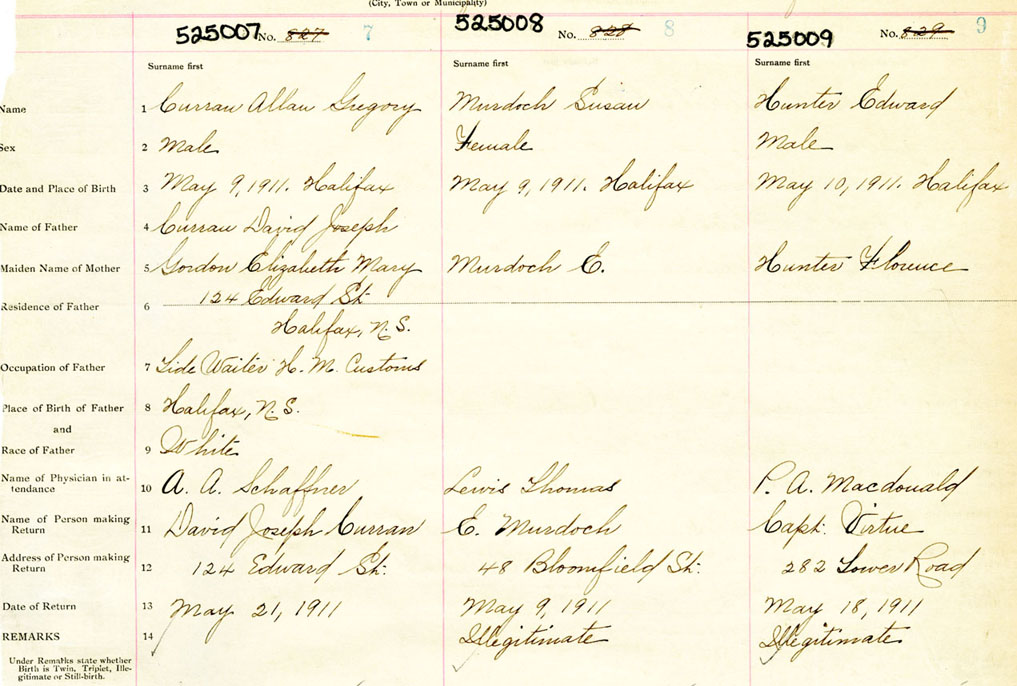 (City, Town or Municipality)
525007 No. 827 7 525008 No. 828 8 525009 No. 829 9
Surname first Surname first Surname first
Name 1 Curran Allan Gregory Murdoch Susan Hunter Edward
Sex 2 Male Female Male
Date and Place of Birth 3 May 9, 1911. Halifax May 9, 1911. Halifax May 10, 1911. Halifax
Name of Father 4 Curran David Joseph
Maiden Name of Mother 5 Gordon Elizabeth Mary Murdoch E. Hunter Florence
Residence of Father 6 124 Edward St.
Halifax, N.S.
Occupation of Father 7 Tide Waiter H. M. Customs
Place of Birth of Father 8 Halifax, N.S.
and
Race of Father 9 White
Name of Physician in at-
tendance 10 A. A. Schaffner Lewis Thomas P. A. Macdonald
Name of Person making
Return 11 David Joseph Curran E. Murdoch Capt. Virtue
Address of Person making
Return 12 124 Edward St. 48 Bloomfield St. 282 Lower Road
Date of Return 13 May 21, 1911 May 9, 1911 May 18, 1911
REMARKS 14 Illegitimate Illegitimate
Under Remarks state whether
Birth is Twin, Triplet, Ille-
gitimate or Still-birth.